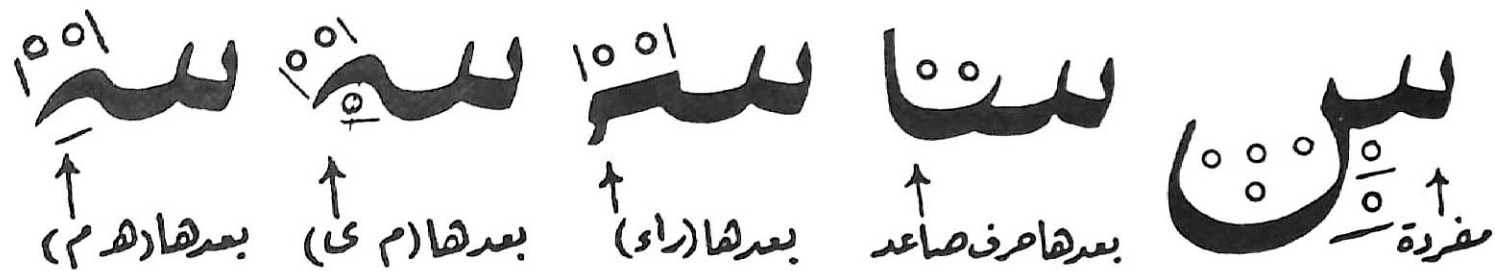 مفردة
بعدها حرف صاعد
بعدها (راء)
بعدها (م ى)
بعدها (هـ م)